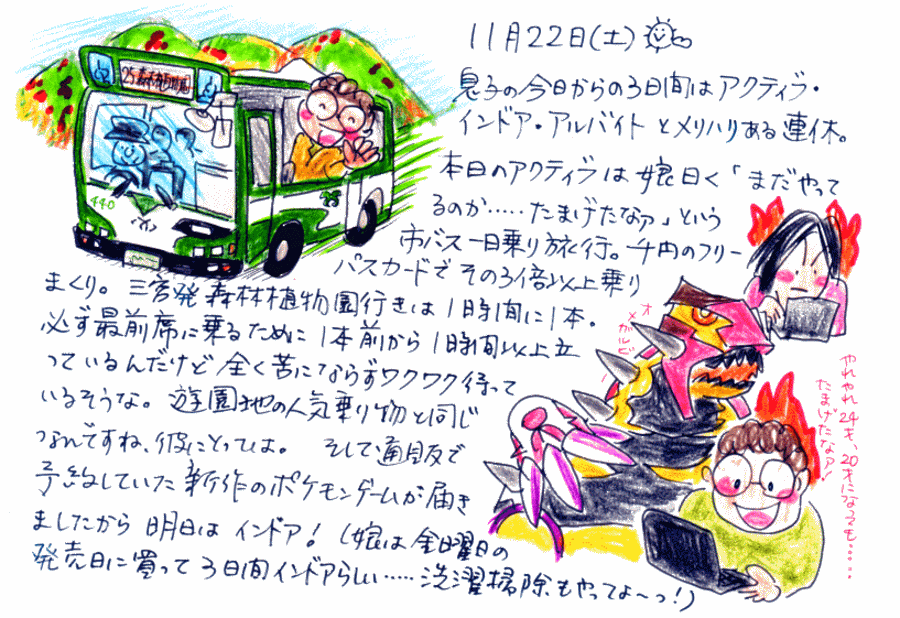 11月22日(土)
息子の今日からの3日間はアクティブ・
インドア・アルバイトとメリハリある連休。
本日のアクティブは娘曰く「まだやって
るのか……たまげたなァ」という
市バス一日乗り旅行。千円のフリー
パスカードでその3倍以上乗り
まくり。三宮発森林植物園行きは1時間に1本。
必ず最前席に乗るために1本前から1時間以上立
っているんだけど全く苦にならずワクワク待って
いるそうな。遊園地の人気乗り物と同じ
なんですね、彼にとっては。そして通販で
予約していた新作のポケモンゲームが届き
ましたから明日はインドア!(娘は金曜日の
発売日に買って3日間インドアらしい……洗濯掃除もやってよ〜っ!)
25森林植物園
440
オメガルビー
やれやれ24才、20才になっても……
たまげたなァ!